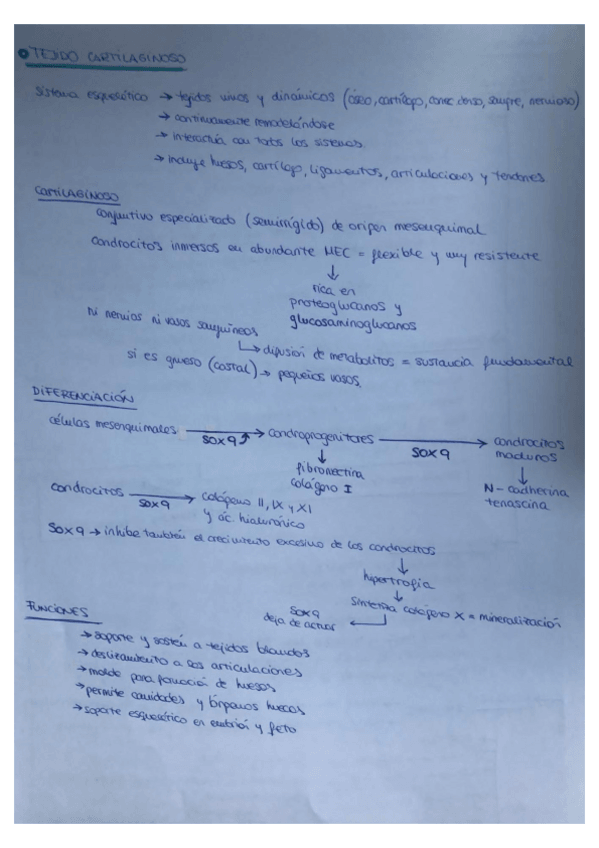 TEJIDO CARTILAGINOSO
Sistema esquelético → tejidos vivos y dinámicos (óseo, cartílago, conec denso, sangre, nervioso)
→ continuamente remodelándose
→ interactúa con todos los sistemas
→ incluye huesos, cartílago, ligamentos, articulaciones y tendones
CARTILAGINOSO
conjuntivo especializado (semirrígido) de origen mesenquimal
condrocitos inmersos en abundante MEC = flexible y muy resistente
↓
rica en
proteoglucanos y
glucosaminoglucanos
Ni nervios ni vasos sanguíneos
↳ difusión de metabolitos = sustancia fundamental
si es grueso (costal) → pequeños vasos.
DIFERENCIACIÓN
células mesenquimales → condroprogenitores → condrocitos
SOX9 ↑ SOX9 maduros
↓ ↓
fibronectina N-cadherina
colágeno I tenascina
condrocitos → colágeno II, IX y XI
SOX9 y ác. hialurónico
SOX9 → inhibe también el crecimiento excesivo de los condrocitos
↓
hipertrofia
↓
sintetiza colágeno X = mineralización
SOX9
deja de actuar ←
FUNCIONES
→ soporte y sostén a tejidos blandos
→ deslizamiento a las articulaciones
→ molde para formación de huesos
→ permite cavidades y órganos huecos
→ soporte esquelético en embrión y feto